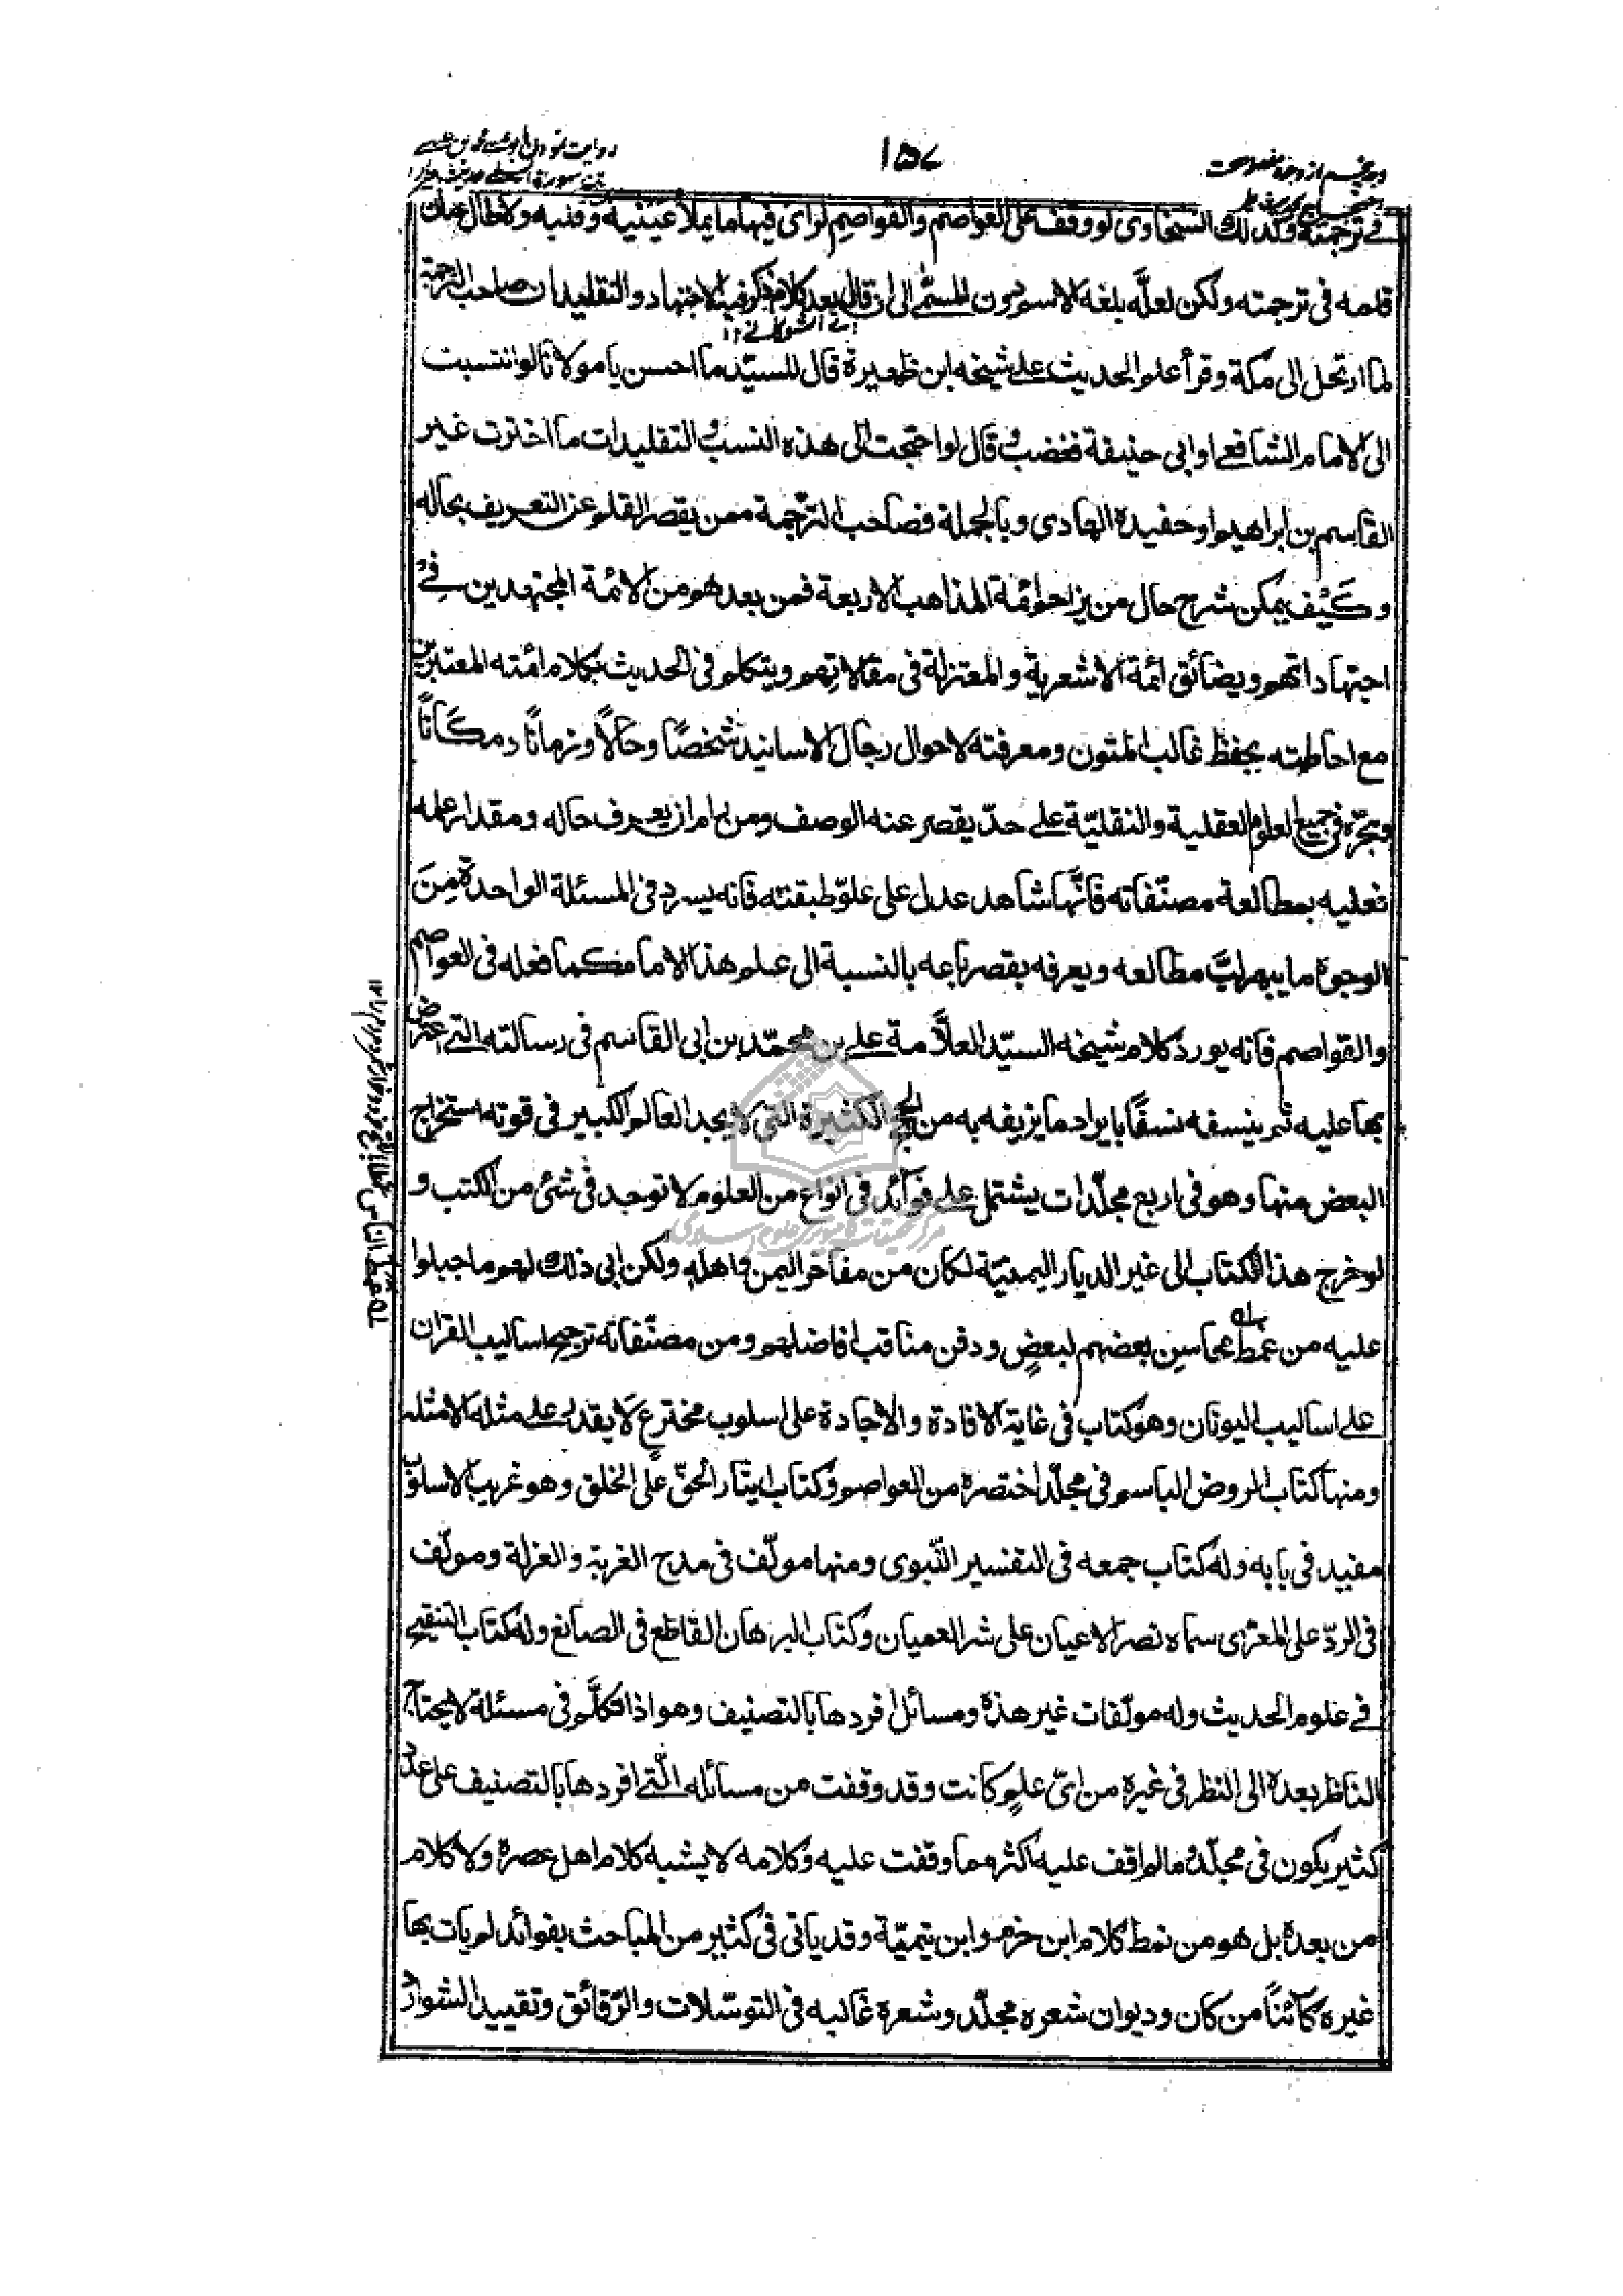 ١٥٧
في ترجمته وكذلك السخاوى لو وقف على العواصم والقواصم لرأى فيها ما يملأ عينيه وقلبه ولطال عنان
قلمه فى ترجمته ولكن لعله بلغه الاسم دون المسمى الى ان قال بعد كلام ذكر فيه الاجتهاد والتقليد ان صاحب الترجمة
اى الشوكانى ١٢
لما ارتحل الى مكة وقرأ علم الحديث على شيخه ابن ظهيرة قال للسيّد ما احسن يا مولانا لو انتسبت
الى الامام الشافعى او ابى حنيفة فغضب وقال لو احتجت الى هذه النسب والتقليدات ما اخترت غير
القاسم بن ابراهيم او حفيده الهادى وبالجملة فصاحب الترجمة ممن يقصر القلم عن التعريف بحاله
وكَيْف يمكن شرح حال من يزاحم ائمة المذاهب الاربعة فمن بعدهم من الائمة المجتهدين فى
اجتهاداتهم ويضائق ائمة الاشعرية والمعتزلة فى مقالاتهم ويتكلم فى الحديث بكلام ائمته المعتبرين
مع احاطته بحفظ غالب المتون ومعرفته لاحوال رجال الاسانيد شخصًا وحالًا وزمانًا ومكانًا
وتبحّره فى جميع العلوم العقلية والنقليّة على حدّ يقصر عنه الوصف ومن رام ان يعرف حاله ومقدار علمه
فعليه بمطالعة مصنّفاته فانّها شاهد عدل على علوّ طبقته فانه يسرد فى المسئلة الواحدة مِنَ
الوجوه ما يبهر لبّ مطالعه ويعرفه بقصر باعه بالنسبة الى علم هذا الامام كما فعله فى العواصم
والقواصم فانه يورد كلام شيخه السيّد العلّامة على بن محمّد بن ابى القاسم فى رسالته التى اعترض
بها عليه ثم ينسفه نسفًا بايراد ما يزيفه به من الحجج الكثيرة التى لا يجد العالم الكبير فى قوته استخراج
البعض منها وهو فى اربع مجلّدات يشتمل على فوائد فى انواع من العلوم لا توجد فى شئ من الكتب و
لو خرج هذا الكتاب الى غير الديار اليمنيّة لكان من مفاخر اليمن واهله ولكن ابى ذلك لهم ما جبلوا
عليه من غمط محاسن بعضهم لبعضٍ ودفن مناقب افاضلهم ومن مصنّفاته ترجيح اساليب القران
على اساليب اليونان وهو كتاب فى غاية الافادة والاجادة على اسلوب مخترعٍ لا يقدر على مثله الا مثله
ومنها كتاب الروض الباسم فى مجلّد اختصره من العواصم وكتاب ايثار الحقّ على الخلق وهو غريب الاسلوب
مفيد فى بابه وله كتاب جمعه فى التفسير النّبوى ومنها مولّف فى مدح الغربة والعزلة ومولّف
فى الردّ على المعرّى سماه نصر الاعيان على شر العميان وكتاب البرهان القاطع فى الصانع وله كتاب التنقيح
فى علوم الحديث وله مولّفات غير هذه ومسائل افردها بالتصنيف وهو اذا تكلّم فى مسئلة لا يحتاج
الناظر بعده الى النظر فى غيره من اىّ علمٍ كانت وقد وقفت من مسائله الّتى افردها بالتصنيف على عدد
كثير يكون فى مجلّد وما لم اقف عليه اكثر مما وقفت عليه وكلامه لا يشبه كلام اهل عصره ولا كلام
من بعده بل هو من نمط كلام ابن حزم وابن تيميّة وقد ياتى فى كثير من المباحث بفوائد لم يات بها
غيره كائنًا من كان وديوان شعره مجلّد وشعره غالبه فى التوسّلات والرّقائق وتقييد الشوارد